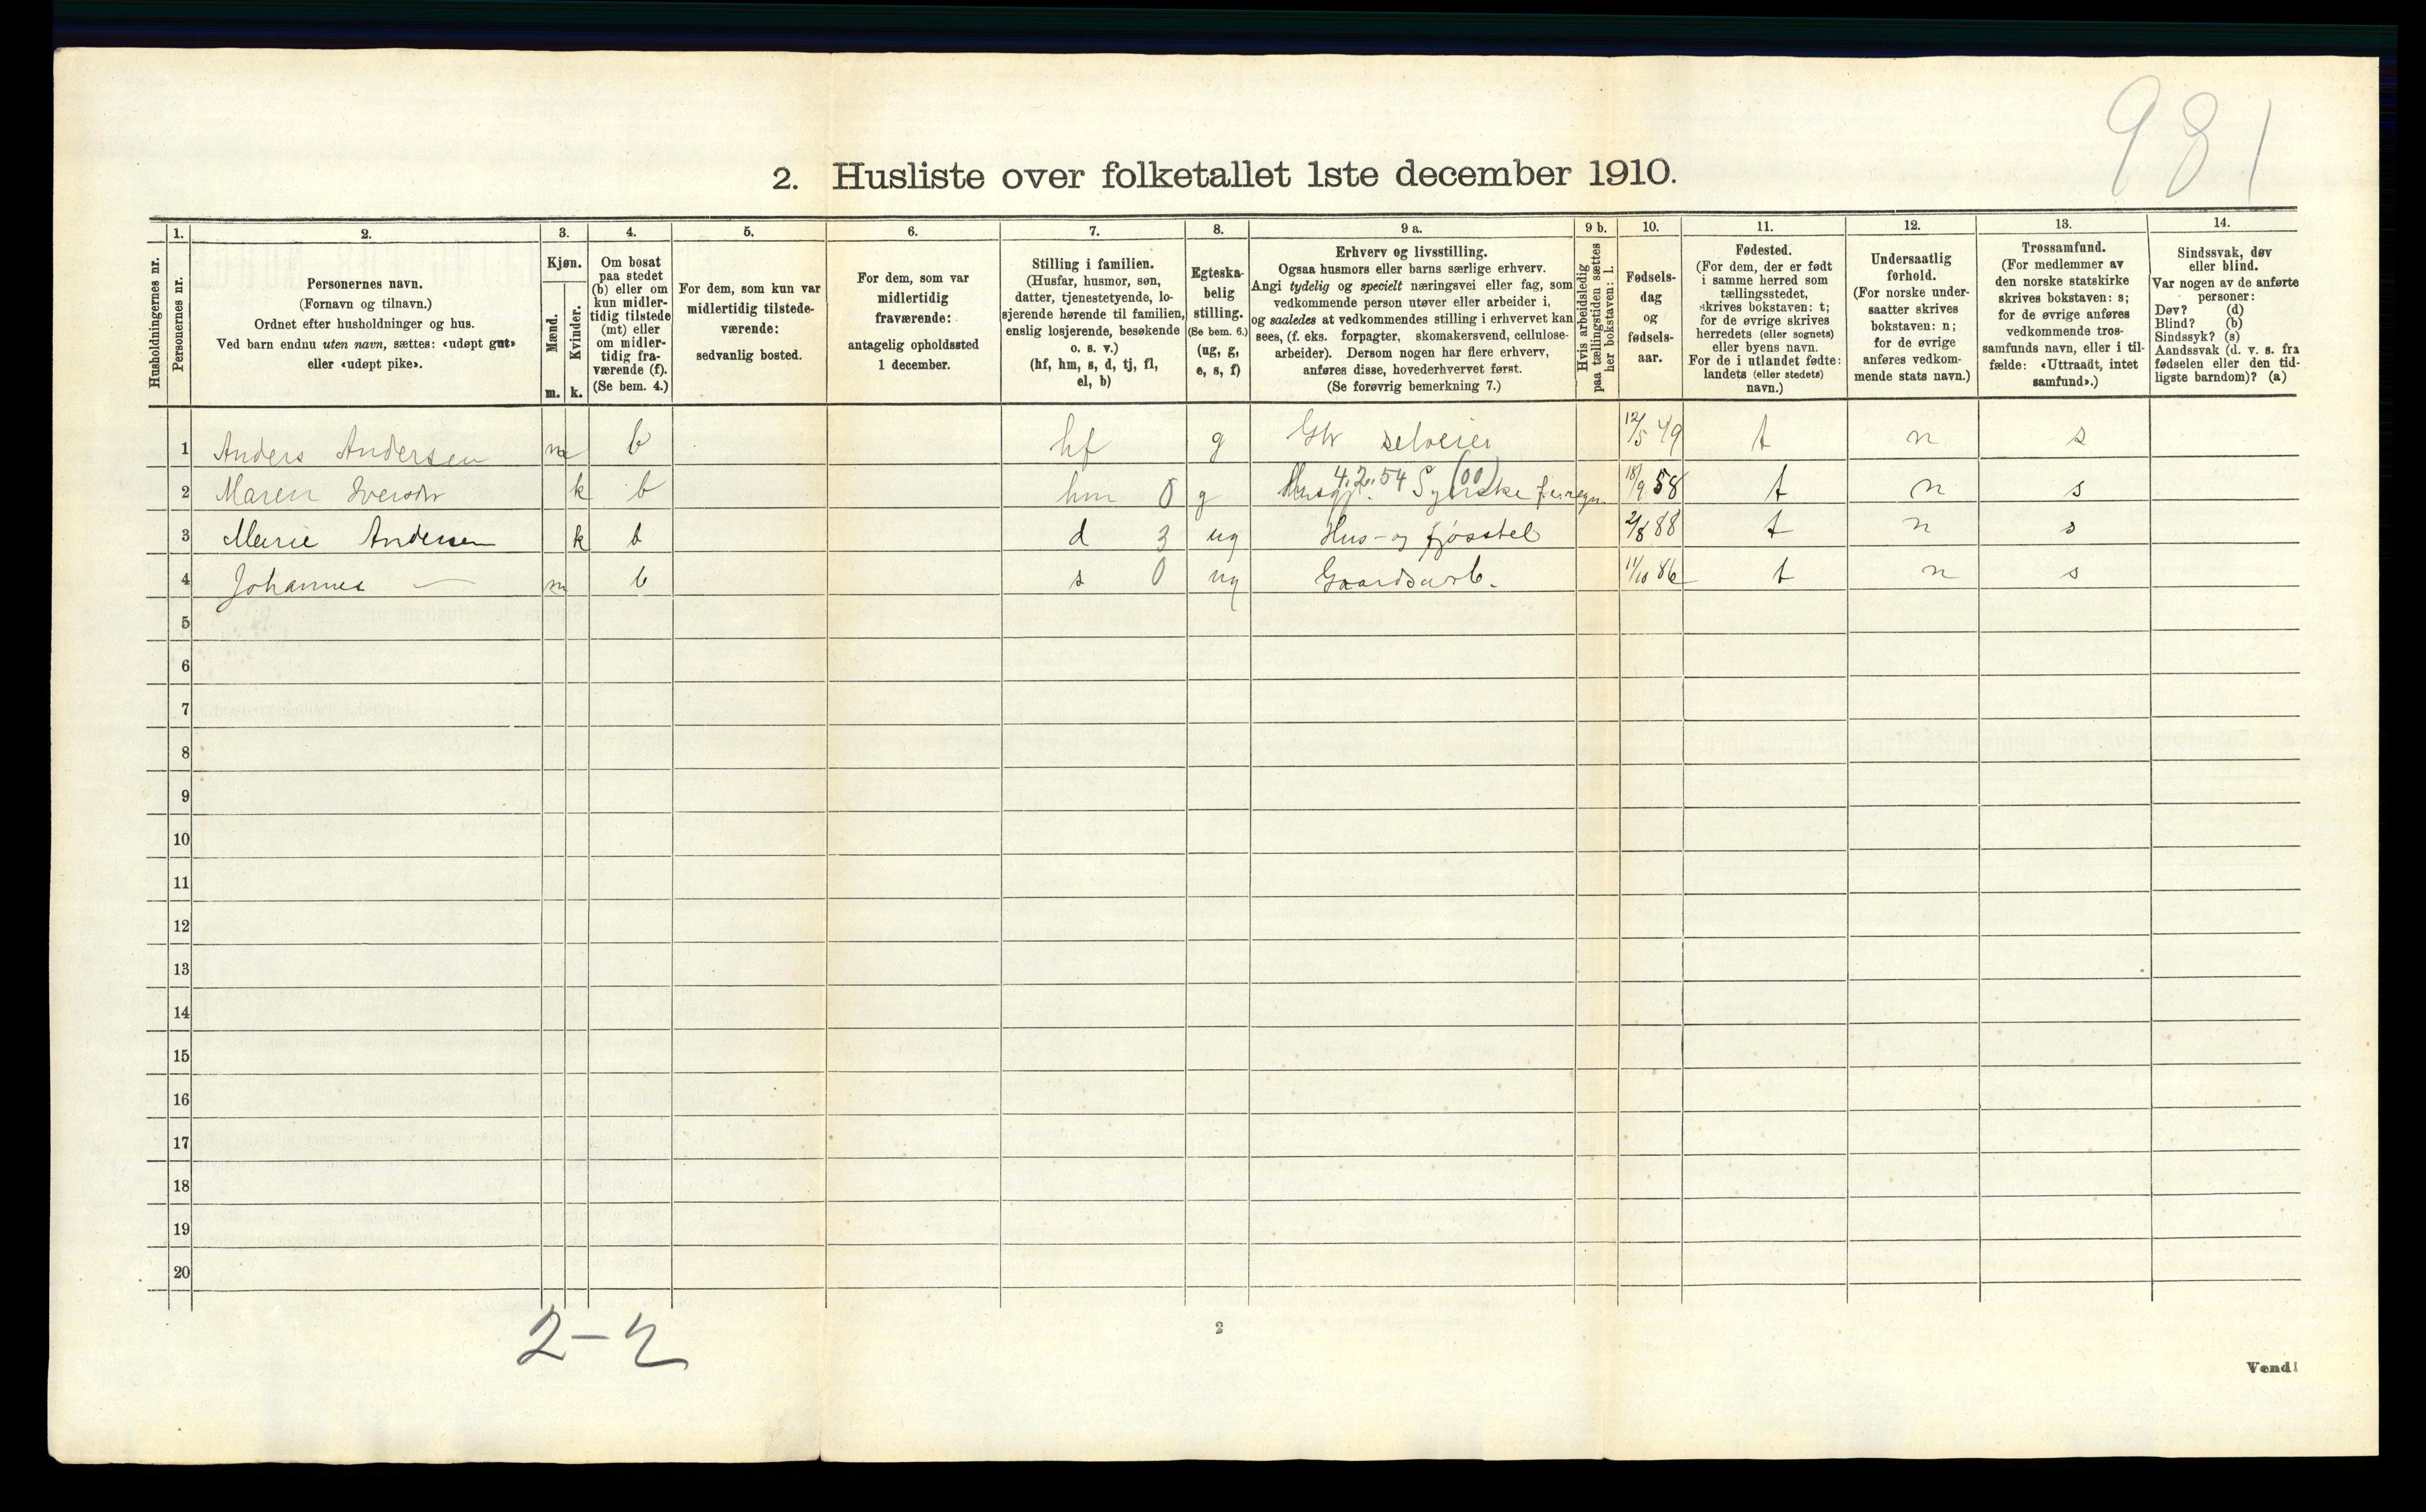 981
2. Husliste over folketallet 1ste december 1910.
Husholdningernes nr.
1.
Personernes nr.
2.
Personernes navn.
(Fornavn og tilnavn.)
Ordnet efter husholdninger og hus.
Ved barn endnu uten navn, sættes: «udøpt gut»
eller «udøpt pike».
3.
Kjøn.
Mænd.
m.
Kvinder.
k.
4.
Om bosat
paa stedet
(b) eller om
kun midler-
tidig tilstede
(mt) eller
om midler-
tidig fra-
værende (f).
(Se bem. 4.)
5.
For dem, som kun var
midlertidig tilstede-
værende:
sedvanlig bosted.
6.
For dem, som var
midlertidig
fraværende:
antagelig opholdssted
1 december.
7.
Stilling i familien.
(Husfar, husmor, søn,
datter, tjenestetyende, lo-
sjerende hørende til familien,
enslig losjerende, besøkende
o. s. v.)
(hf, hm, s, d, tj, fl,
el, b)
8.
Egteska-
belig
stilling.
(Se bem. 6.)
(ug, g,
e, s, f)
9 a.
Erhverv og livsstilling.
Ogsaa husmors eller barns særlige erhverv.
Angi tydelig og specielt næringsvei eller fag, som
vedkommende person utøver eller arbeider i,
og saaledes at vedkommendes stilling i erhvervet kan
sees, (f. eks. forpagter, skomakersvend, cellulose-
arbeider). Dersom nogen har flere erhverv,
anføres disse, hovederhvervet først.
(Se forøvrig bemerkning 7.)
9 b.
Hvis arbeidsledig
paa tællingstiden sættes
her bokstaven: l.
10.
Fødsels-
dag
og
fødsels-
aar.
11.
Fødested.
(For dem, der er født
i samme herred som
tællingsstedet,
skrives bokstaven: t;
for de øvrige skrives
herredets (eller sognets)
eller byens navn.
For de i utlandet fødte:
landets (eller stedets)
navn.)
12.
Undersaatlig
forhold.
(For norske under-
saatter skrives
bokstaven: n;
for de øvrige
anføres vedkom-
mende stats navn.)
13.
Trossamfund.
(For medlemmer av
den norske statskirke
skrives bokstaven: s;
for de øvrige anføres
vedkommende tros-
samfunds navn, eller i til-
fælde: «Uttraadt, intet
samfund».)
14.
Sindssvak, døv
eller blind.
Var nogen av de anførte
personer:
Døv? (d)
Blind? (b)
Sindssyk? (s)
Aandssvak (d. v. s. fra
fødselen eller den tid-
ligste barndom)? (a)
1 Anders Andersen m b hf g Gbr selveier 12/5 49 t n s
4.2.54 (00)
2 Maren Iversdr k b hm 0 g Husgj. 18/9 58 t n s
3 Marie Andersen k b d 3 ug Hus- og fjøsstel 2/8 88 t n s
4 Johannes — m b s 0 ug Gaardsarb. 11/10 86 t n s
5
6
7
8
9
10
11
12
13
14
15
16
17
18
19
20
2-2
2
Vend!